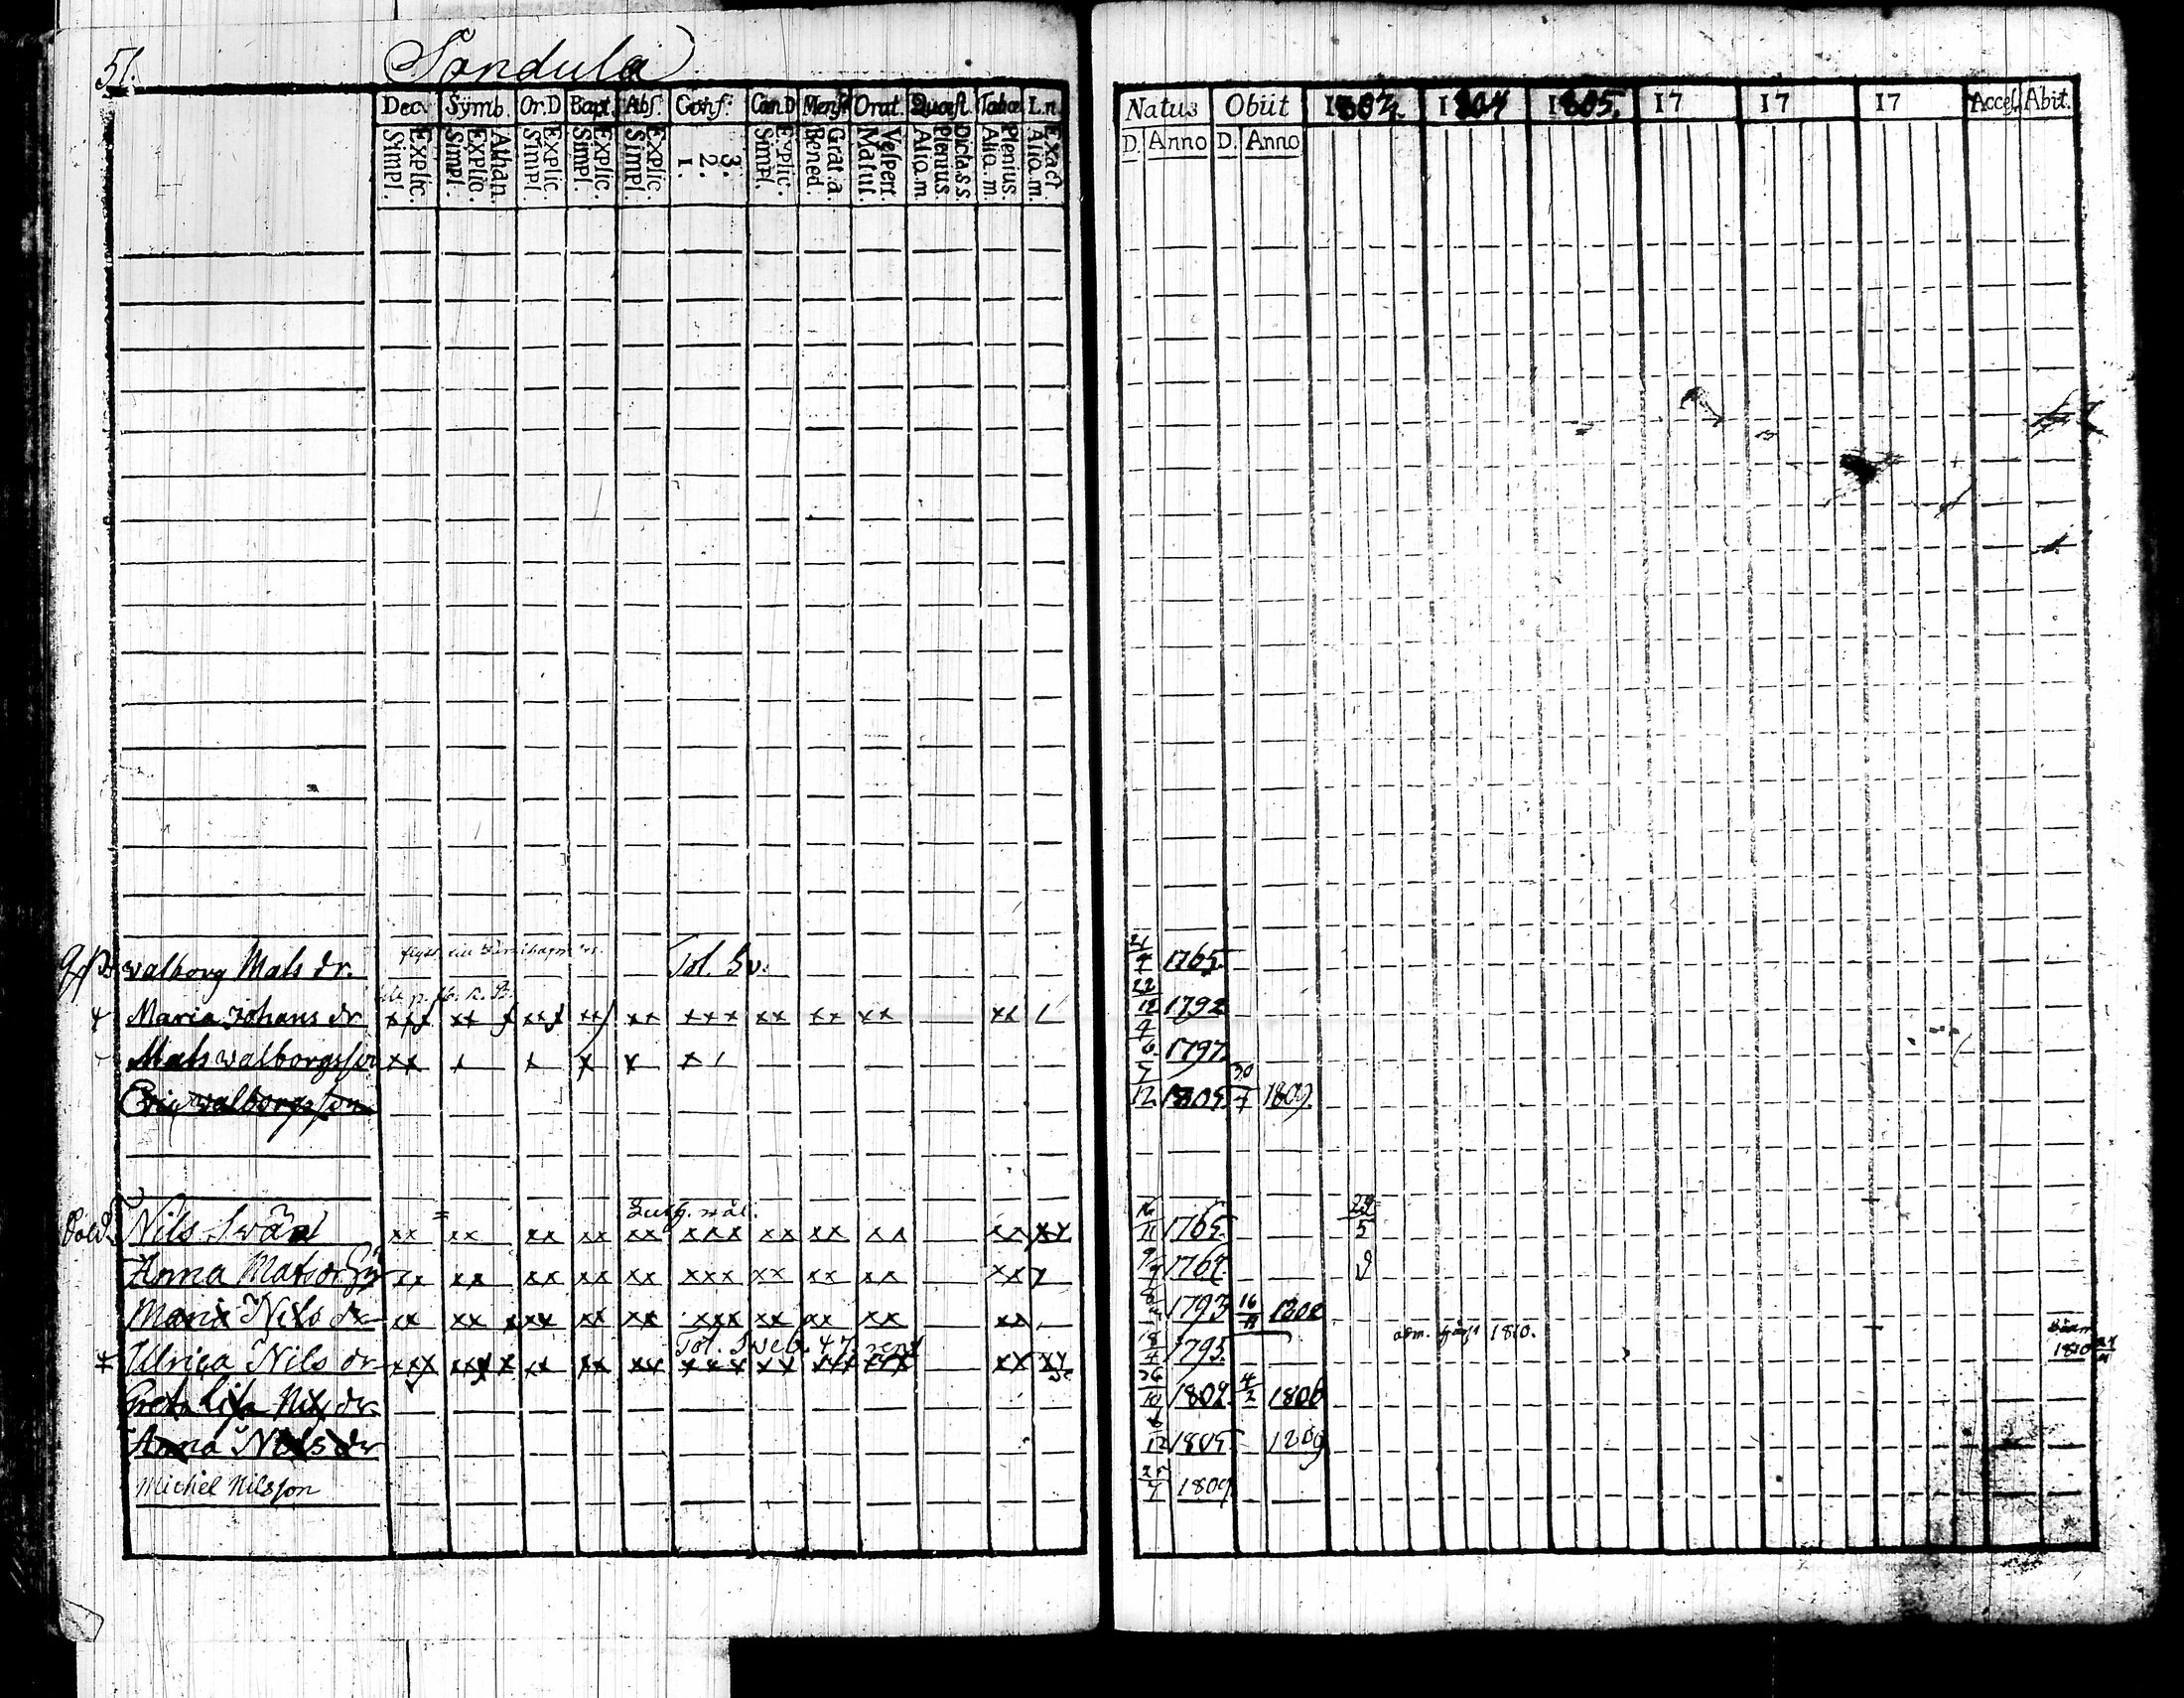 51. Tondula
Dec. Symb. Or.D Bapt. Abs. Conf. Cœn.D Mensæ Orat. Quæst. Tabœ L.n.
Simpl. Explic. Simpl. Explic. Athan. Simpl. Explic. Simpl. Explic. Simpl. Explic. 1. 2. 3. Simpl. Explic. Bened. Grat.a. Matut. Vespert. Aliq.m Plenius. Dicta.s.s. Aliq.m Plenius. Aliq.m. Exact
Natus Obiit 1803. 1804 1805. 17 17 17 Access. Abit.
D. Anno D. Anno
Walborg Mats dr. Tol. Sv. 21/4 1765.
Maria Johans dr xxx xx xx xx xx xxx xx xx xx xx 22/12 1792
Mats Walborgsson xx x x x x x 4/6 1797.
Eric Walborgsson 5/12 1805. 30/7 1809.
Nils Svärd xx xx xx xx xx xxx xx xx xx xx xx 16/11 1765. 29/5
Anna Mats dr xx xx xx xx xx xxx xx xx xx xx 1767.
Maria Nils dr xx xx xxx xx xx xxx xx xx xx xx 1793 16/11 1802
Ulrica Nils dr xxx xxx x xx xx xx xxx xx xxx xxx xx xx 18/4 1795. 1810. 1810
Greta Lisa Nils dr 26/10 1802. 4/2 1806
Anna Nils dr 1805 1809
Michel Nilsson 1809